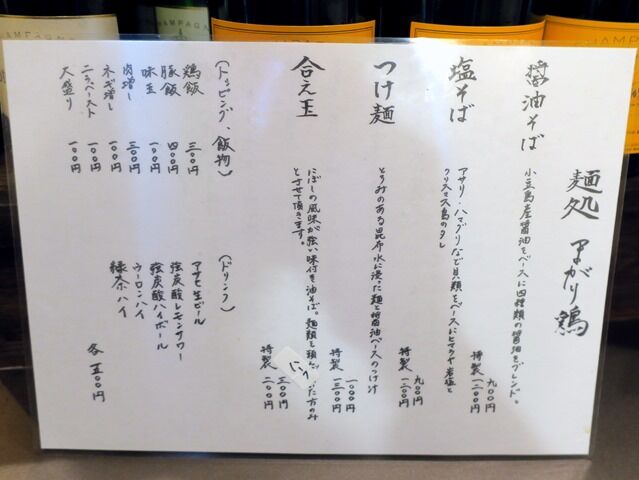 麺処 まがり鶏
醤油そば
小豆島産醤油をベースに四種類の醤油をブレンド。
九〇〇円
特製 一二〇〇円
塩そば
アサリ・ハマグリなど貝類をベースにヒマラヤ岩塩と
クリスマス島のタレ
九〇〇円
特製 一二〇〇円
つけ麺
とろみのある昆布水に浸った麺と醤油ベースのつけ汁
一〇〇〇円
特製 一三〇〇円
合え玉
にぼしの風味が強い味付き油そば。麺類を頂いた方のみ
とさせて頂きます。
三〇〇円
特製
(トッピング、飯物)
鶏飯 三〇〇円
豚飯 四〇〇円
味玉 一〇〇円
肉増し 三〇〇円
ネギ増し 一〇〇円
ニラペースト 一〇〇円
大盛り 一〇〇円
(ドリンク)
アサヒ生ビール
強炭酸レモンサワー
強炭酸ハイボール
ウーロンハイ
緑茶ハイ
各 五〇〇円
CHAMPAGNE